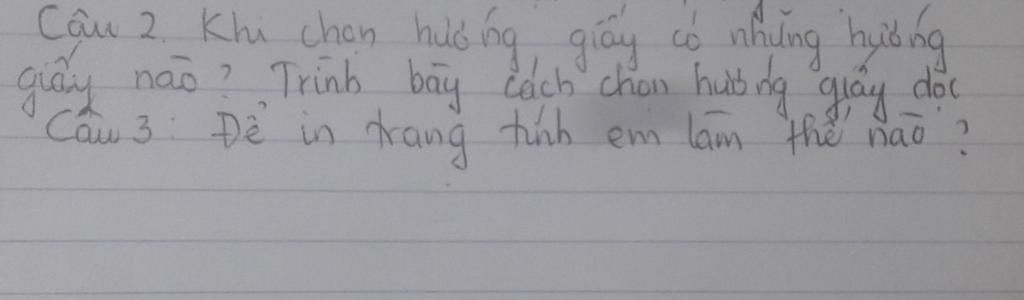 Câu 2. Khi chọn hướng giấy có những hướng
giấy nào? Trình bày cách chọn hướng giấy dọc
Câu 3: Để in trang tính em làm thế nào?